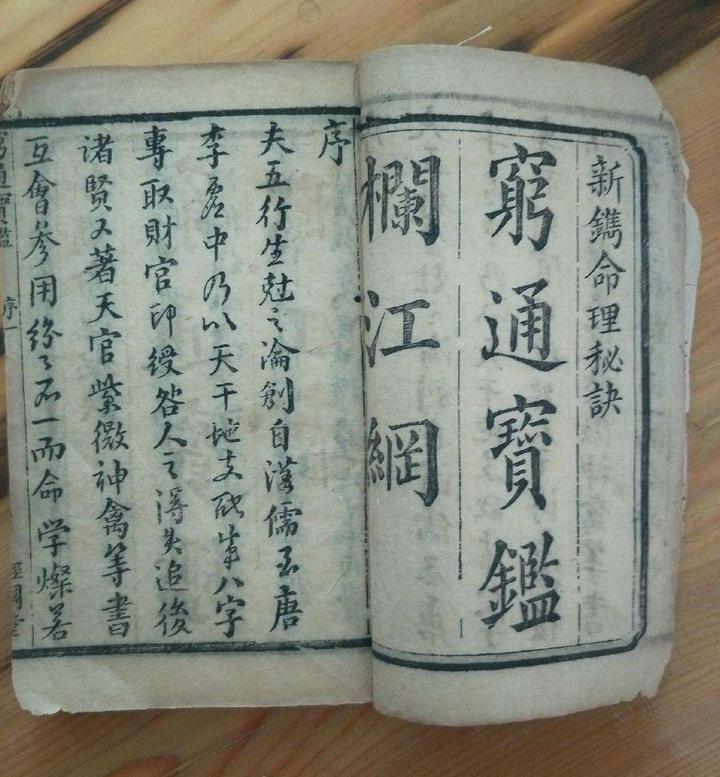 新鐫命理秘訣
窮通寶鑑
欄江網
序
夫五行生尅之淪創自漢儒至唐
李虛中乃以天干地支配成八字
專取財官印綬咎人之得失追後
諸賢又著天官紫微神禽等書
互會參用紛〻不一而命学燦若
窮通寶鑑
序一